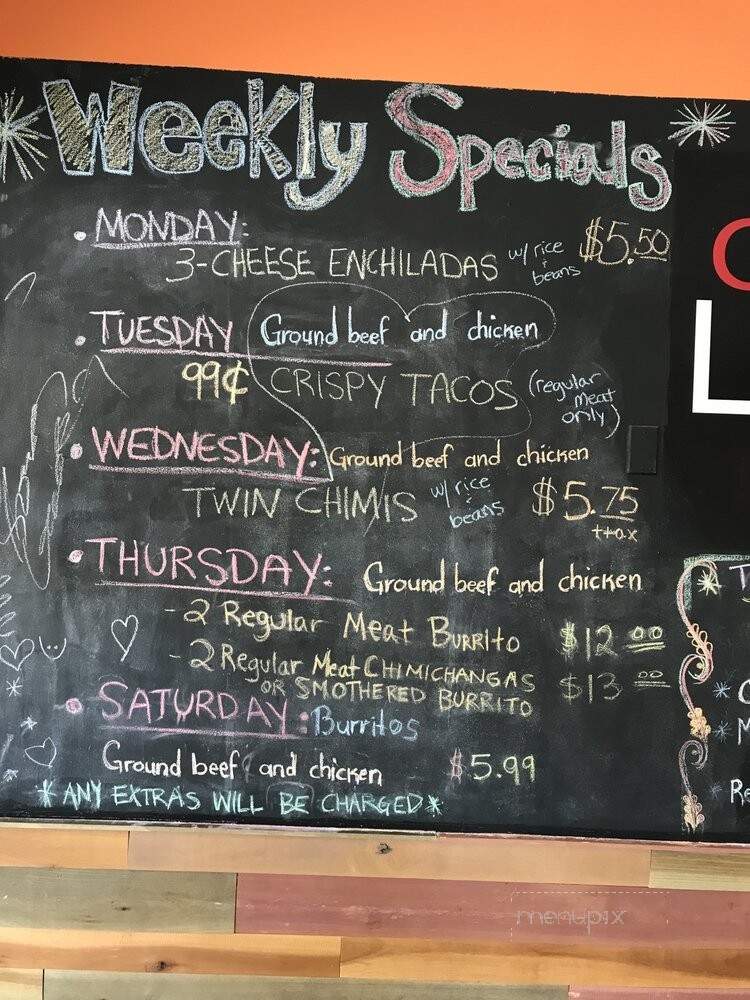 Weekly Specials
• MONDAY:
3-CHEESE ENCHILADAS w/ rice + beans $5.50
• TUESDAY Ground beef and chicken
99¢ CRISPY TACOS (regular meat only)
• WEDNESDAY: Ground beef and chicken
TWIN CHIMIS w/ rice + beans $5.75
+tax
• THURSDAY: Ground beef and chicken
- 2 Regular Meat Burrito $12.00
- 2 Regular Meat CHIMICHANGAS
OR SMOTHERED BURRITO $13.00
• SATURDAY: Burritos
Ground beef and chicken $5.99
* ANY EXTRAS WILL BE CHARGED *
menupix